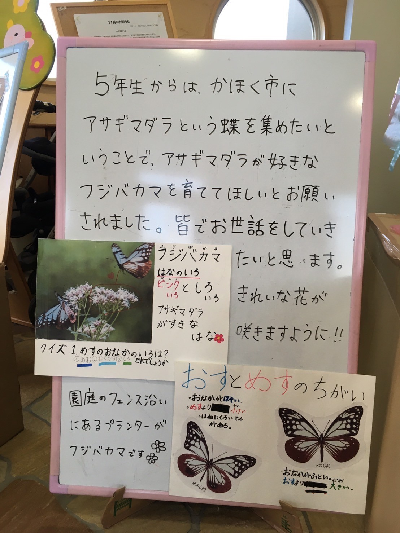 5年生からは、かほく市に
アサギマダラという蝶を集めたいと
いうことで、アサギマダラが好きな
フジバカマを育ててほしいとお願い
されました。皆でお世話をしていき
たいと思います。
きれいな花が
咲きますように!!
フジバカマ
はなのいろ
ピンクとしろ
いろ
いろ
アサギマダラ
がすきな
はな
クイズ1 めすのおなかのいろは?
園庭のフェンス沿い
にあるプランターが
フジバカマです
おすとめすのちがい